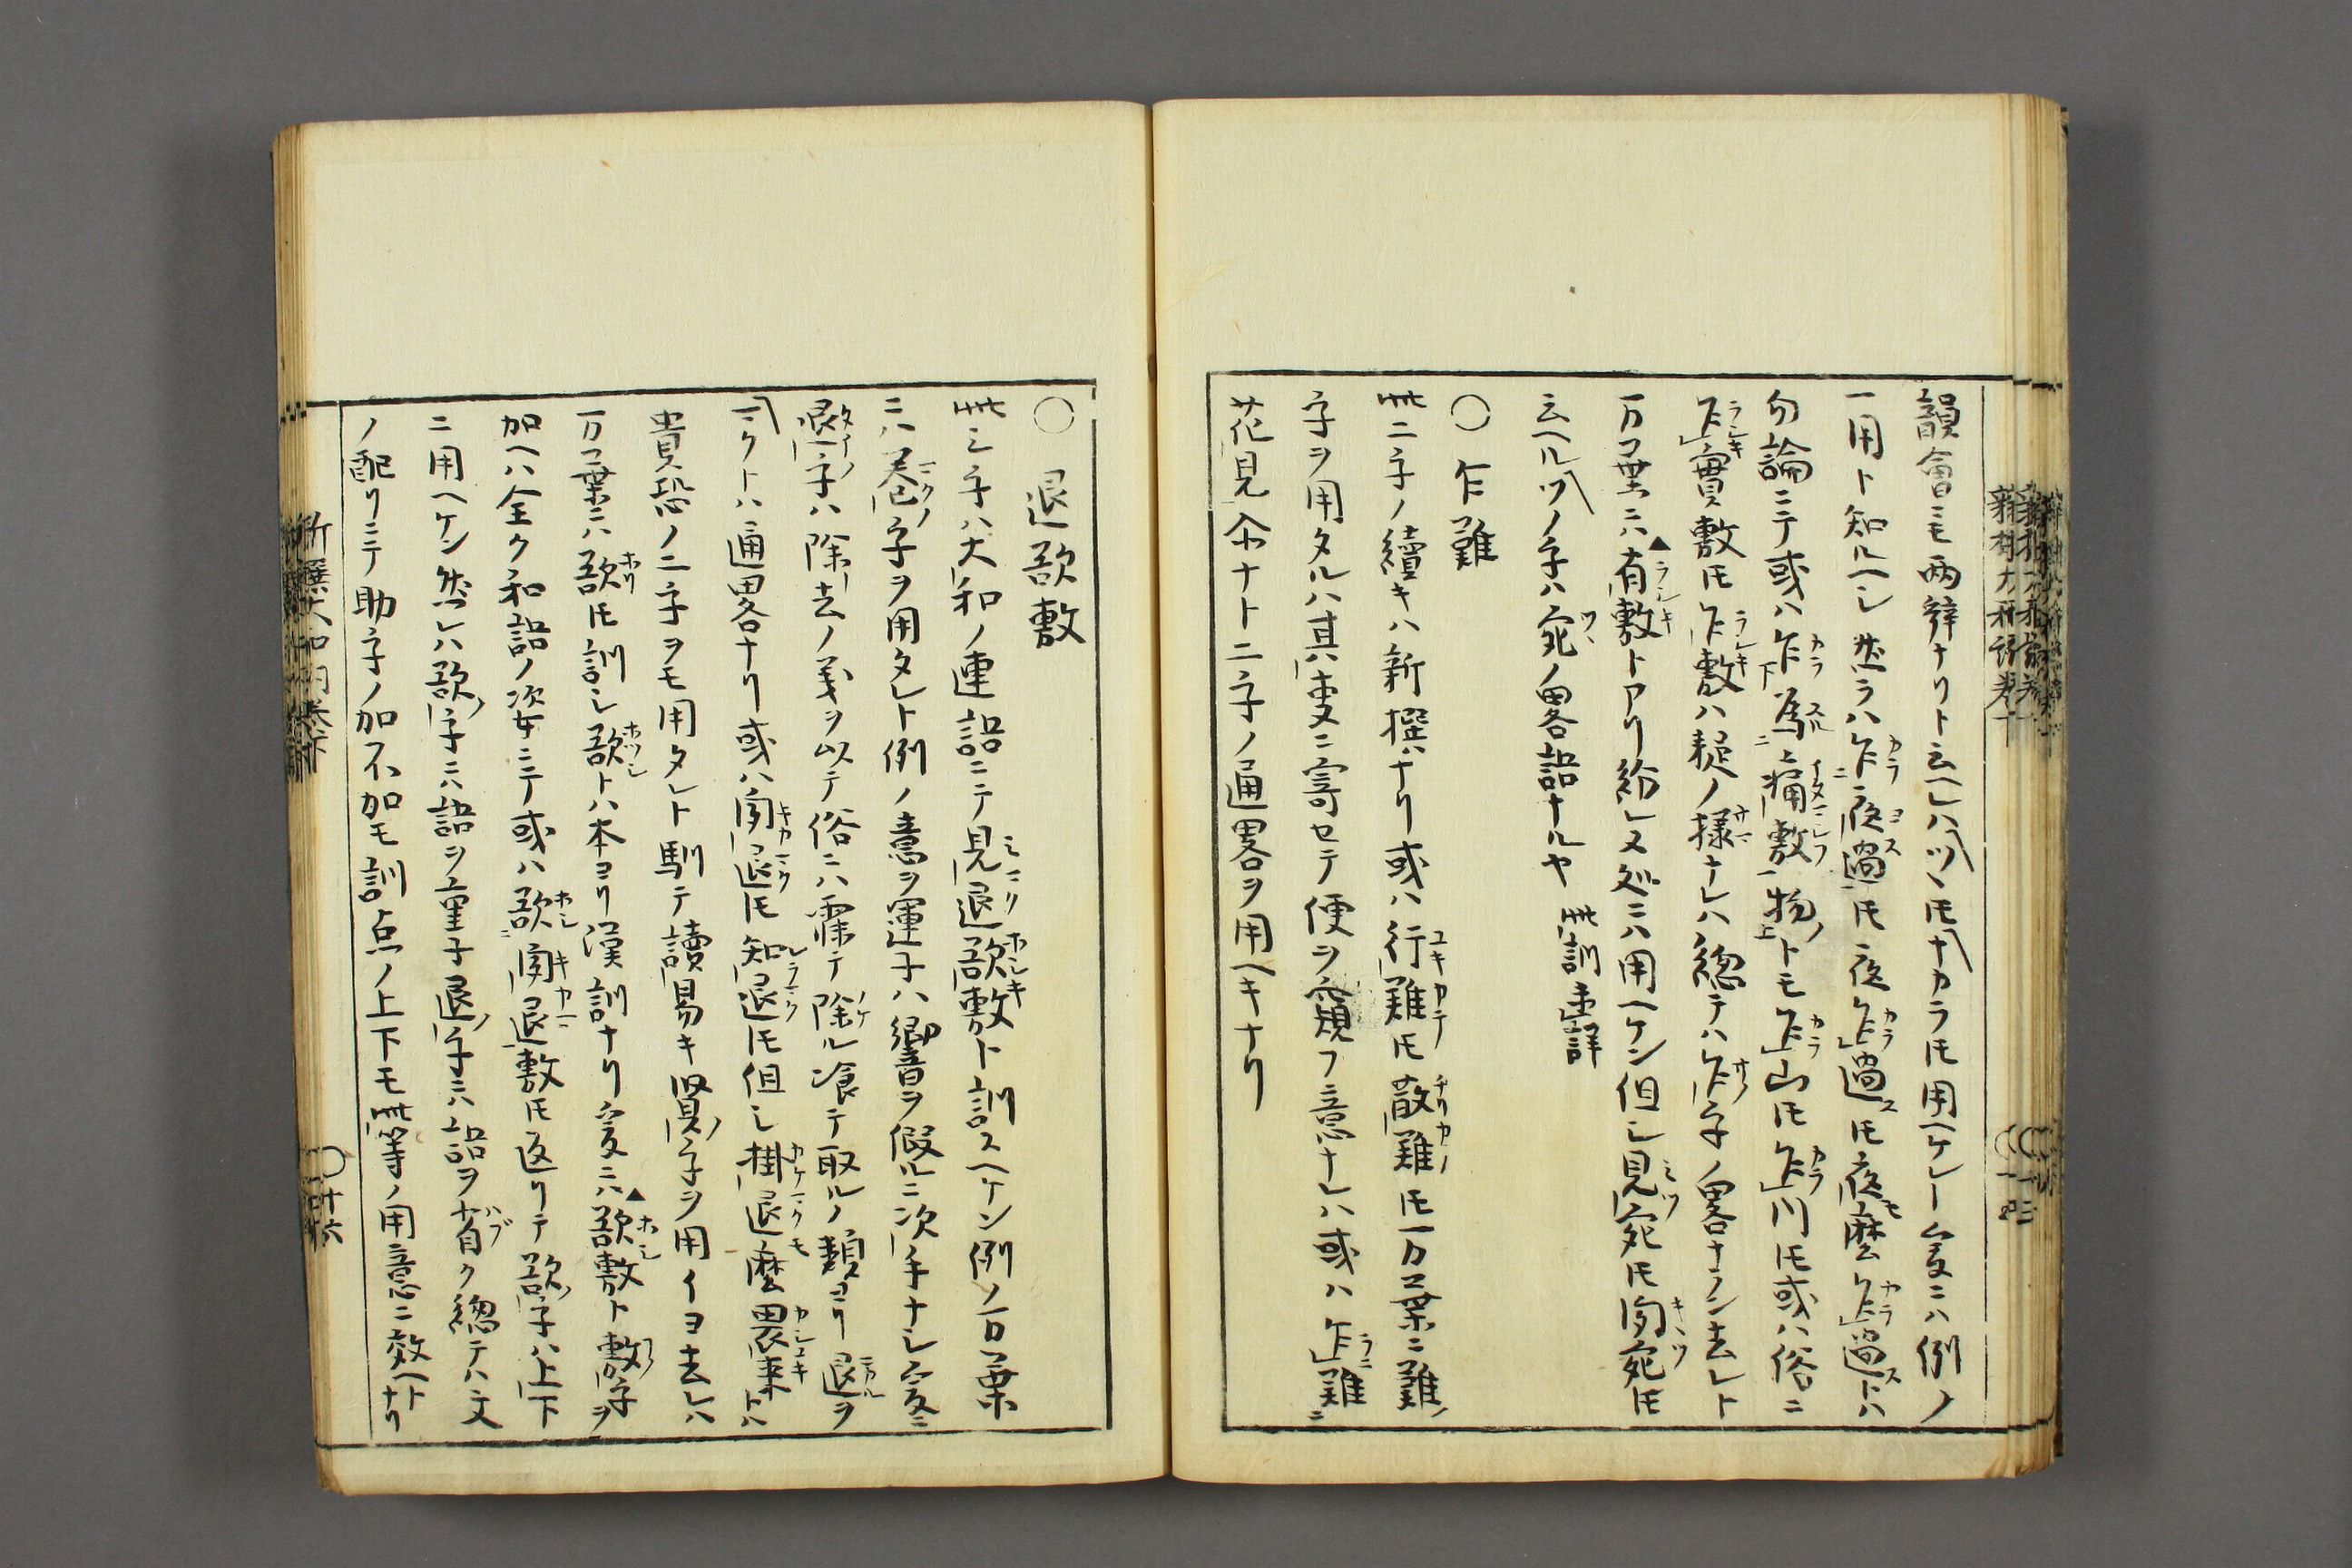 韻會ニモ両辞ナリト云ヘレハツヽ𪜈ナカラ𪜈用ヘケレー爰ニハ例ノ
一用ト知ルヘシ然ラハ乍夜過𪜈夜乍過𪜈夜麼乍過トハ
勿論ニテ或ハ乍為痛敷物トモ乍山𪜈乍川𪜈或ハ俗ニ
乍實敷𪜈乍敷ハ ノ様ナレハ總テハ乍字ノ畧ナラン去レト
万葉ニハ有敷トアリ紛レヌ処ニハ用ヘケン但シ見宛𪜈聞宛𪜈
云ヘルツヽノ字ハ宛ノ畧語ナルヤ 此訓未詳
〇 乍難
此二字ノ續キハ新撰ナリ或ハ行難𪜈散難𪜈万葉ニ難
字ヲ用タルハ其支ニ寄セテ便ヲ窺フ意ナレハ或ハ乍難ニ
花見尒ナト二字ノ通畧ヲ用ヘキナリ
〇 退欲敷
此三字ハ大和ノ連語ニテ見退欲敷ト訓スヘケン例ソ万葉
ニハ巻字ヲ用タレト例ノ意ヲ運テハ響ヲ假ル二次手ナシ爰ニ
退字ハ除去ノ義ヲ以テ俗ニハ霖テ除ル飡テ取ルノ類ヨリ退ヲ
ニクトハ通畧ナリ或ハ聞退𪜈知退𪜈但シ掛退麼畏来トハ
貴恐ノ二字ヲモ用タレト馴テ讀易キ賢字ヲ用イヨ去レハ
万葉ニハ欲𪜈訓シ欲トハ本ヨリ漢訓ナリ爰ニハ欲敷ト敷字ヲ
加ヘハ全ク和語ノ姿ニテ或ハ欲聞退敷𪜈返リテ欲字ハ上下
ニ用ヘケン然レハ欲字ニハ語ヲ重子退字ニハ語ヲ省ク總テハ文
ノ配リニテ助字ノ加不加モ訓点ノ上下モ此等ノ用意ニ效ヘトナリ
新撰大和詞巻下
〇十六